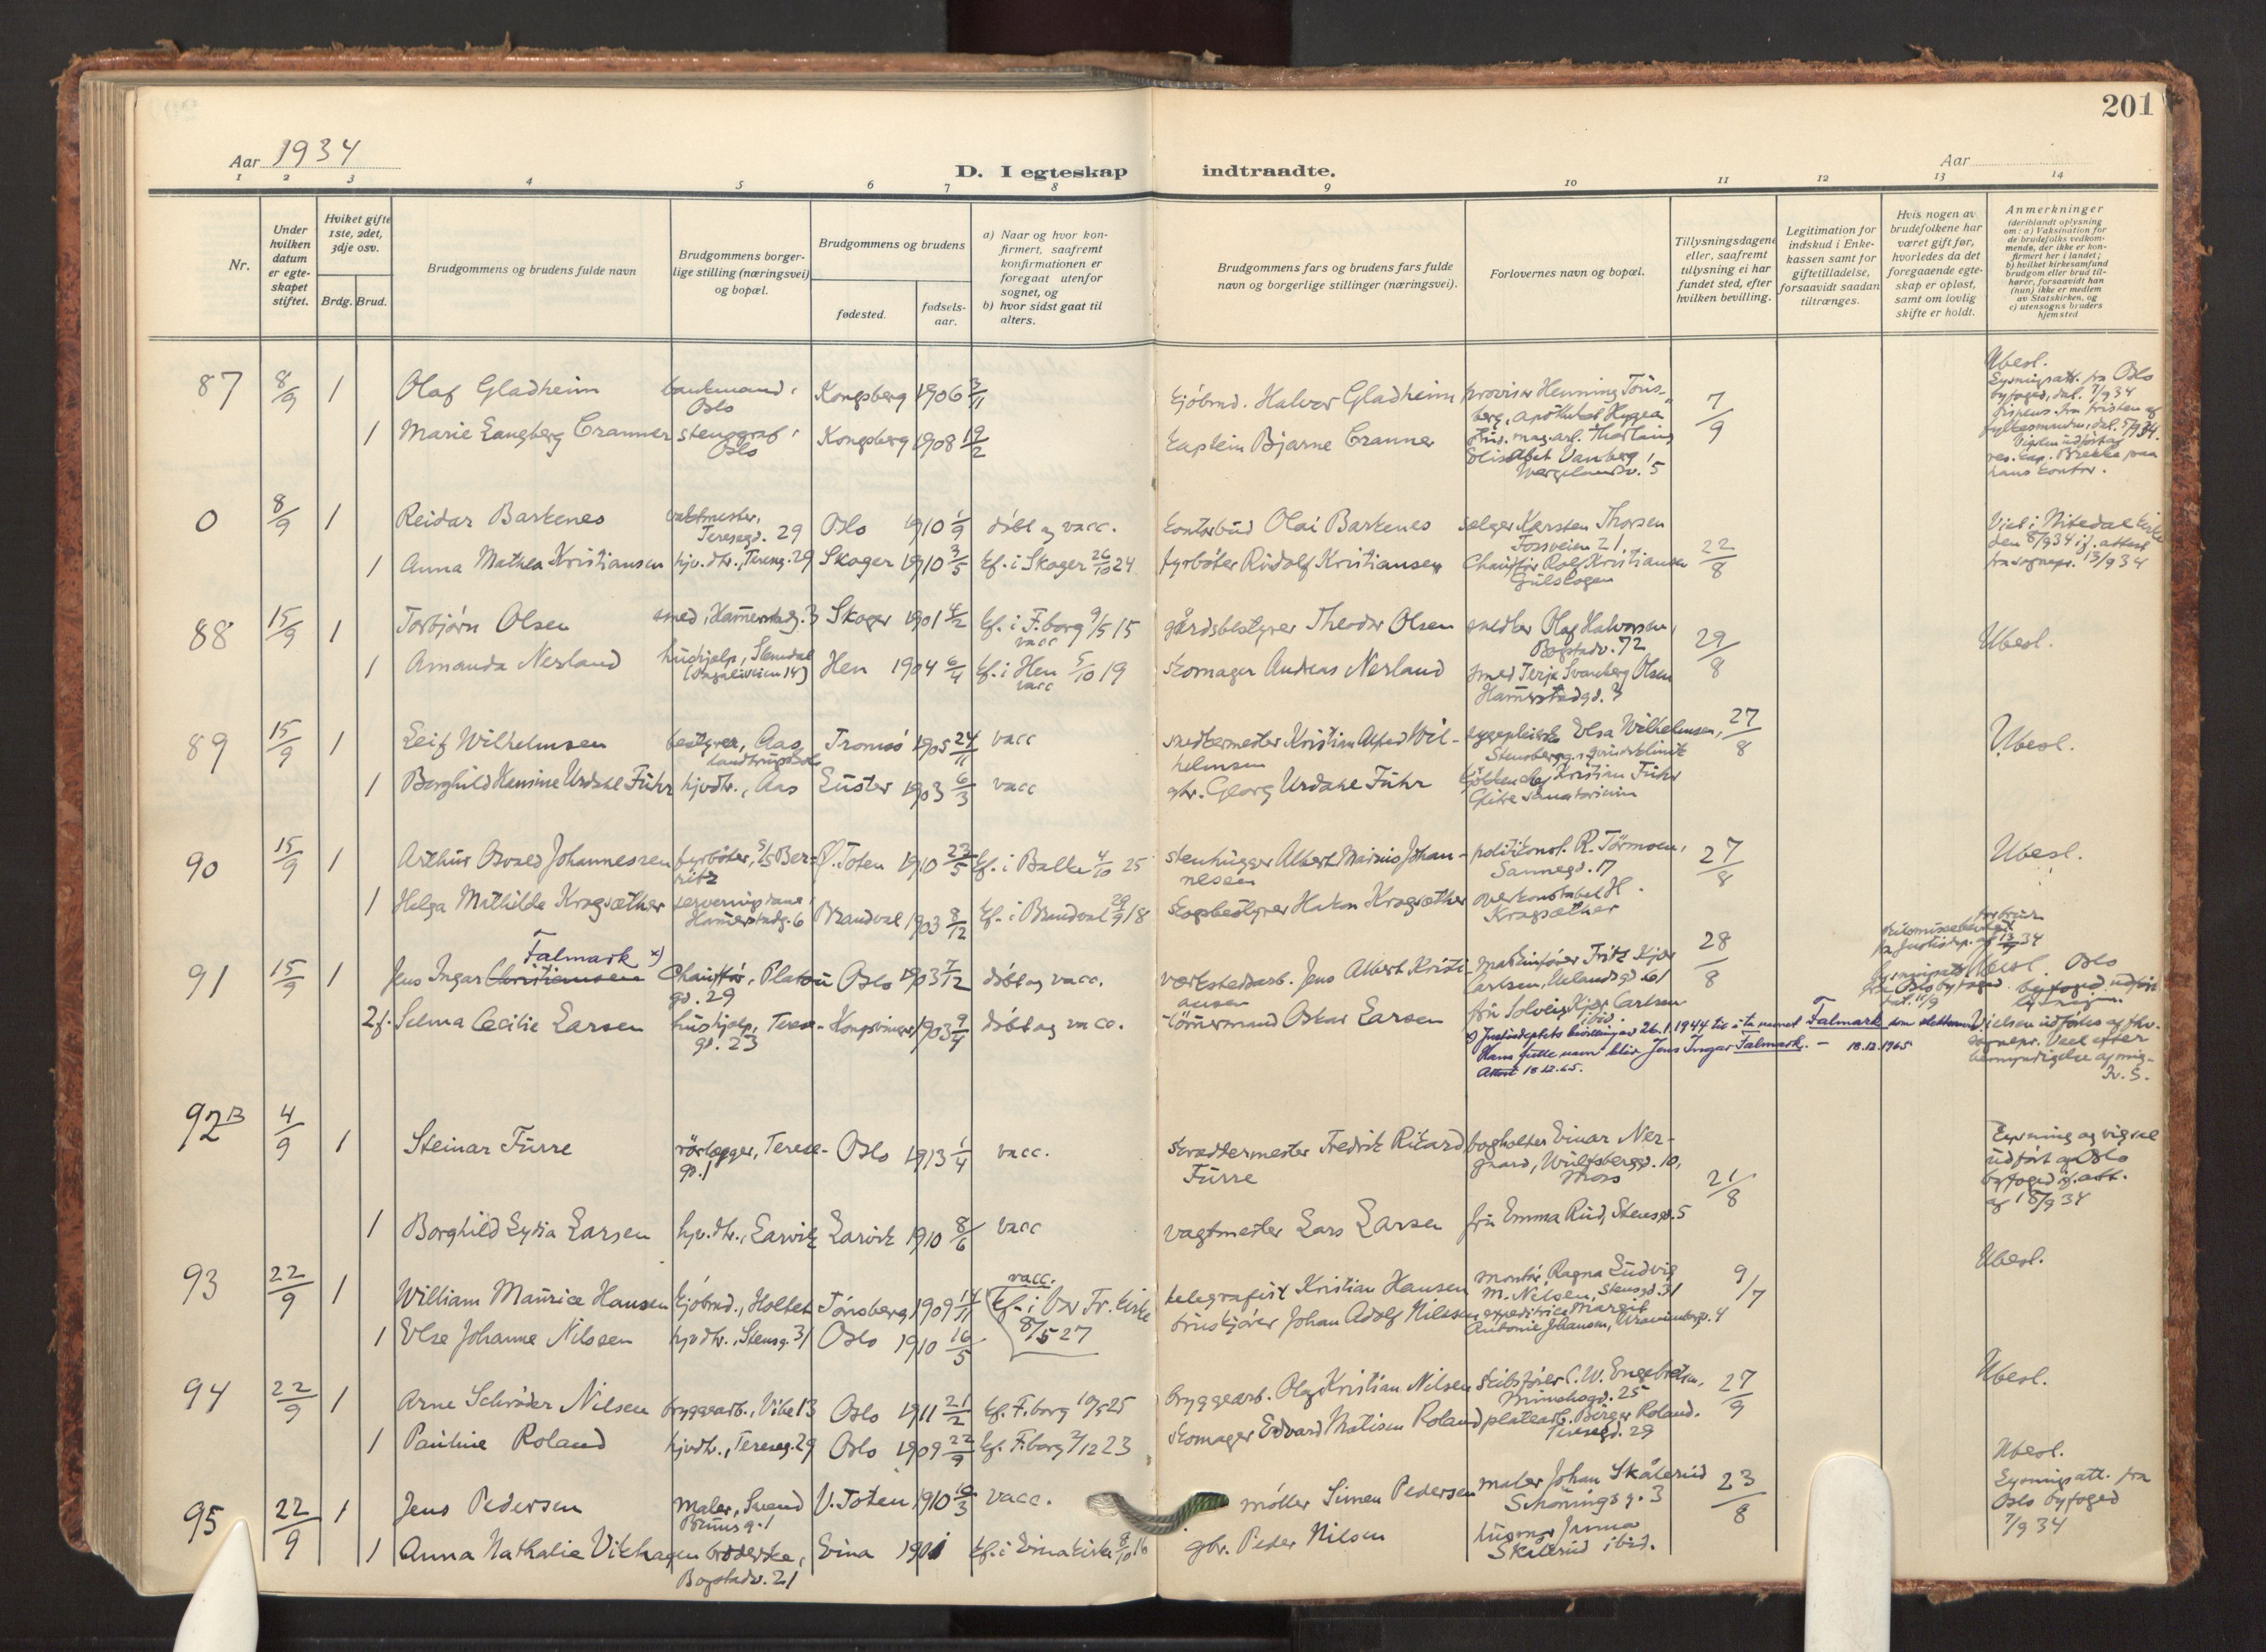 201
Aar 1934
D. I egteskap indtraadte.
Aar
1 2 3 4 5 6 7 8 9 10 11 12 13 14
Nr.
Under hvilken datum er egteskapet stiftet.
Hviket gifte 1ste, 2det, 3dje osv.
Brdg. Brud.
Brudgommens og brudens fulde navn
Brudgommens borgerlige stilling (næringsvei) og bopæl.
Brudgommens og brudens
fødested.
fødselsaar.
a) Naar og hvor konfirmert, saafremt konfirmationen er foregaat utenfor sognet, og
b) hvor sidst gaat til alters.
Brudgommens fars og brudens fars fulde navn og borgerlige stillinger (næringsvei).
Forlovernes navn og bopæl.
Tillysningsdagene eller, saafremt tillysning ei har fundet sted, efter hvilken bevilling.
Legitimation for indskud i Enkekassen samt for giftetilladelse, forsaavidt saadan tiltrænges.
Hvis nogen av brudefolkene har været gift før, hvorledes da det foregaaende egteskap er opløst, samt om lovlig skifte er holdt.
Anmerkninger
(deriblandt oplysning om: a) Vaksination for de brudefolks vedkommende, der ikke er konfirmert her i landet; b) hvilket kirkesamfund brudgom eller brud tilhører, forsaavidt han (hun) ikke er medlem av Statskirken, og c) utensogns bruders hjemsted
87 8/9 1 Olaf Gladheim bankmand, Oslo Kongsberg 1906 3/11 kjøbmd. Halvor Gladheim provisor Henning Tønsberg, apotheket Hygea 7/9
Ubesl.
Lysningsatt. fra Oslo byfoged, dat. 7/9 34
1 Marie Langberg Cranner stenograf, Oslo Kongsberg 1908 19/2 kaptein Bjarne Cranner Elisabet Vanberg, Wergelandsv. 5
0 8/9 1 Reidar Barkenes vaktmester, Teresegd. 29 Oslo 1910 1/9 døbt og vacc. kontorbud Olai Barkenes selger Karsten Thorsen Fossveien 21 22/8
Viet i Nitedal kirke den 8/9 34 if. attest fra sognepr. 13/9 34
1 Anna Mathea Kristiansen hjv.dtr., Tereseg. 29 Skoger 1910 3/5 kf. i Skoger 26/10 24 fyrbøter Rudolf Kristiansen Chauffør Rolf Kristiansen Gulskogen
88 15/9 1 Torbjørn Olsen smed, Hamerstadg. 3 Skoger 1901 4/2 kf. i F.borg 9/5 15 vacc gårdsbestyrer Theodor Olsen snedker Olaf Halvorsen, Bogstadv. 72 29/8 Ubesl.
1 Amanda Nesland hushjelp, Slemdal Hen 1904 6/4 kf. i Hen 5/10 19 vacc skomager Andreas Nesland smed Terje Svanberg Olsen Hamerstadgd. 3
89 15/9 1 Leif Wilhelmsen bestyrer, Aas Tromsø 1905 24/11 vacc snedkermester Kristian Alfred Wilhelmsen sygepleierske Elsa Wilhelmsen, 27/8 Ubesl.
1 Borghild Hansine Urdahl Führ hjvdtr., Aas Luster 1903 6/3 vacc gbr. Georg Urdahl Führ kjøkkenchef Kristian Führ Glitre sanatorium
90 15/9 1 Arthur Osvald Johannessen fyrbøter, S/S Berritz Ø. Toten 1910 23/5 kf. i Balke 4/10 25 stenhugger Albert Marius Johannesen politikonst. R. Tørmoen, Sannegd. 17 27/8 Ubesl.
1 Helga Mathilde Kragsæther serveringsdame, Hamerstadg. 6 Brandval 1903 8/12 kf. i Brandval 29/9 18 skogbestyrer Hakon Kragsæther overkonstabel H. Kragsæther
91 15/9 1 Jens Ingar Christiansen Falmark x) Chauffør, Platougd. 29 Oslo 1903 7/12 døbt og vacc. verkstedsarb. Jens Albert Kristiansen maskinfører Fritz Kjær Carlsen, Uelandsgd. 61 28/8
2 f. Selma Cecilie Larsen hushjelp, Teresegd. 23 Kongsvinger 1903 9/4 døbt og vacc. tømmermand Oskar Larsen fru Solveig Kjær Carlsen ibid.
x) Justisdeptets bevilling av 26.1.1944 til å ta navnet Falmark som slektsnavn.
Hans fulle navn blir Jens Ingar Falmark. – 18.12.1965
Attest 18.12.65.
Vielsen udførtes af fhv. sognepr. Veel efter bemyndigelse af mig –
92 B 4/9 1 Steinar Furre rørlægger, Teresegd. 1 Oslo 1913 1/4 vacc. skreddermester Fredrik Rikard Furre bogholter Einar Nergaard, Wulfsbergd. 10, Moss 21/8
Lysning og vigsel udført af Oslo byfoged if. att. af 18/9 34
1 Borghild Lydia Larsen hjv.dtr., Larvik Larvik 1910 8/6 vacc vagtmester Lars Larsen fru Emma Rud, Stensgd. 5
93 22/9 1 William Maurice Hansen kjøbmd., Holtet Tønsberg 1909 17/11 vacc. telegrafist Kristian Hansen montør Ragna Ludvig M. Nilsen, Stensgd. 31 9/7 Ubesl.
1 Else Johanne Nilssen hjvdtr., Stensg. 31 Oslo 1910 16/5 kf. i Vor Fr. kirke 8/5 27 Johan Adolf Nilssen expeditrice Margit Antonie Johansen, Uranienborg. 4
94 22/9 1 Arne Schrøder Nilsen bryggearb., Vibe 13 Oslo 1911 21/2 kf. F.borg 10/5 25 bryggearb. Olaf Kristian Nilsen skibsfører C. W. Engebretsen, Munchsgd. 25 27/9 Ubesl.
1 Pauline Roland hjvdtr., Tereseg. 29 Oslo 1909 22/9 kf. F.borg 2/12 23 skomager Edvard Matisen Roland platearb. Birger Roland. Teresegd. 29
95 22/9 1 Jens Pedersen maler, Svend Bruns g. 1 V. Toten 1910 16/3 vacc. møller Simen Pedersen maler Johan Skålerud Schøningsg. 3 23/8
Ubesl.
Lysningsatt. fra Oslo byfoged 7/9 34
1 Anna Nathalie Vikhagen broderske, Bogstadv. 21 Eina 1901 kf. i Eina kirke 8/10 16 gbr. Peder Nilsen husmor Skålerud ibid.